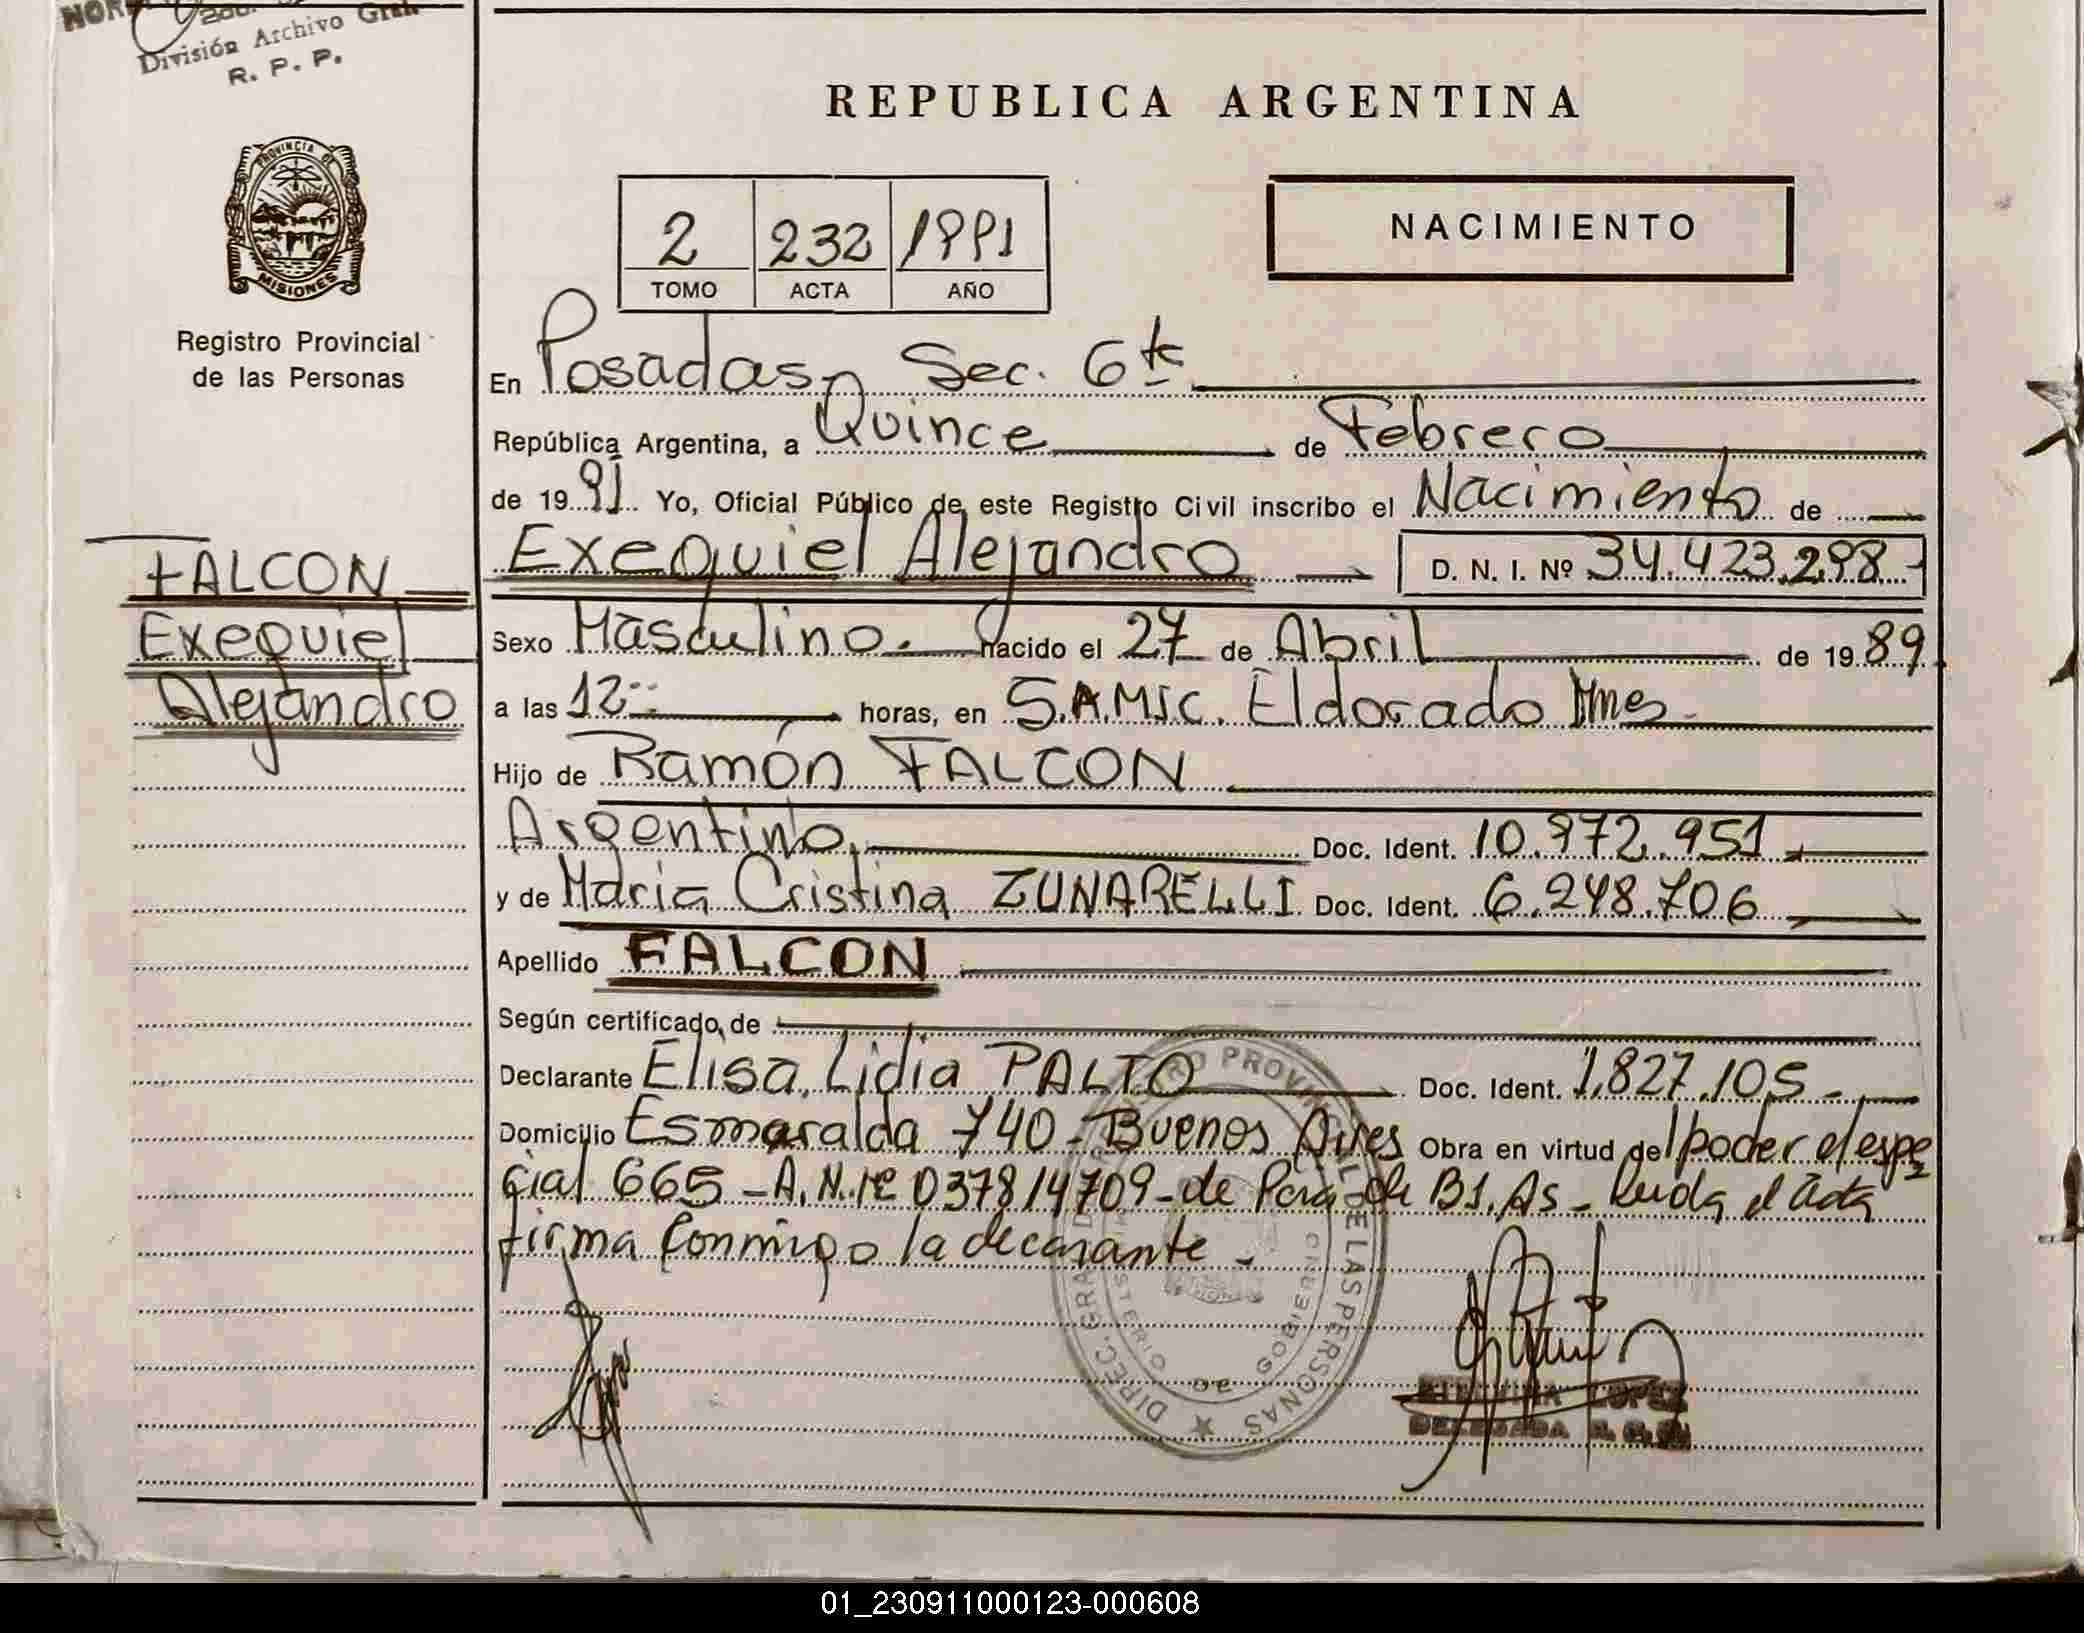 División Archivo Gral.
R. P. P.
PROVINCIA DE
MISIONES
Registro Provincial
de las Personas
FALCON
Exequiel
Alejandro
REPUBLICA ARGENTINA
2 232 1991
TOMO ACTA AÑO
NACIMIENTO
En Posadas, Sec. 6ta
República Argentina, a Quince de Febrero
de 19 91 Yo, Oficial Público de este Registro Civil inscribo el Nacimiento de
Exequiel Alejandro D. N. I. Nº 34.423.298
Sexo Masculino. nacido el 27 de Abril de 19 89
a las 12 horas, en S.A.M.I.C. Eldorado Mnes
Hijo de Ramón FALCON
Argentino, Doc. Ident. 10.972.951
y de Maria Cristina ZUNARELLI Doc. Ident. 6.248.706
Apellido FALCON
Según certificado de
Declarante Elisa Lidia PALTO Doc. Ident. 1.827.105
Domicilio Esmeralda 740 - Buenos Aires Obra en virtud del poder espe
cial 665 - A.N. Nº 037814709 - de Bs. As - Leida el Acta
firma conmigo la declarante -
DIREC. GRAL. REGISTRO PROVINCIAL DE LAS PERSONAS
MINISTERIO DE GOBIERNO
LOPEZ
DELEGADA R. C.
01_230911000123-000608